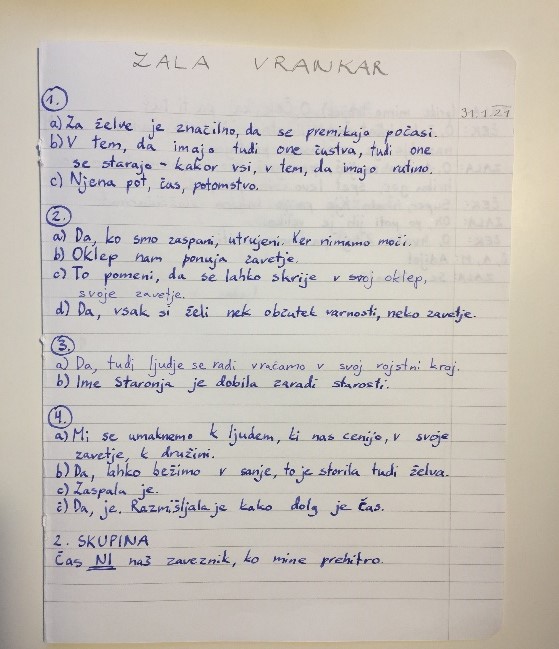 ZALA VRANKAR
31.1.21
1.
a) Za želve je značilno, da se premikajo počasi.
b) V tem, da imajo tudi one čustva, tudi one
se starajo - kakor vsi, v tem, da imajo rutino.
c) Njena pot, čas, potomstvo.
2.
a) Da, ko smo zaspani, utrujeni. Ker nimamo moči.
b) Oklep nam ponuja zavetje.
c) To pomeni, da se lahko skrije v svoj oklep,
svoje zavetje.
d) Da, vsak si želi nek občutek varnosti, neko zavetje.
3.
a) Da, tudi ljudje se radi vračamo v svoj rojstni kraj.
b) Ime Staronja je dobila zaradi starosti.
4.
a) Mi se umaknemo k ljudem, ki nas cenijo, v svoje
zavetje, k družini.
b) Da, lahko bežimo v sanje, to je storila tudi želva.
c) Zaspala je.
č) Da, je. Razmišljala je kako dolg je čas.
2. SKUPINA
Čas NI naš zaveznik, ko mine prehitro.